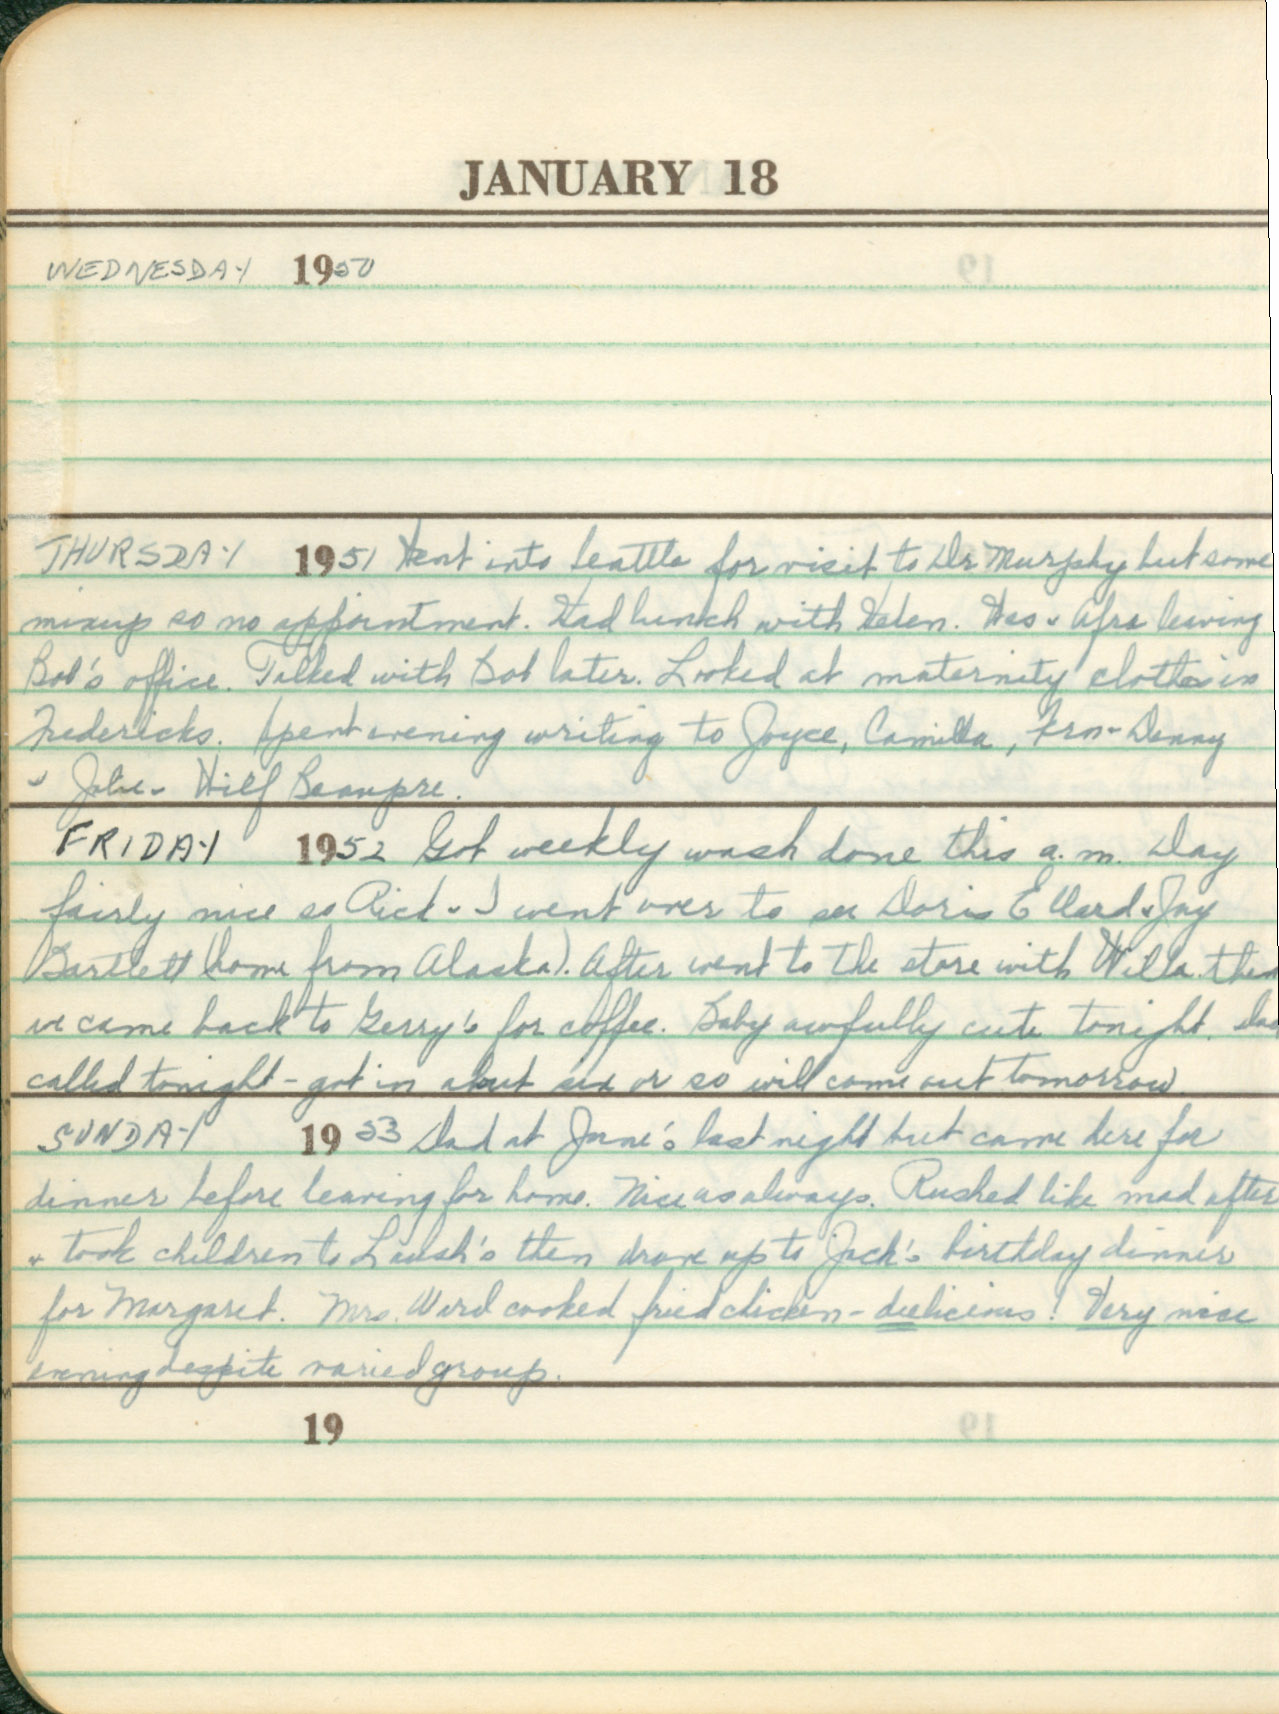 JANUARY 18
WEDNESDAY 1950
THURSDAY 1951 Went into Seattle for visit to Dr Murphy but some
mixup so no appointment. Had lunch with Helen. Was + Afra leaving
Bob's office. Talked with Bob later. Looked at maternity clothes in
Fredericks. Spent evening writing to Joyce, Camilla, Fern + Denny
+ Julie + Hilf Beaupre.
FRIDAY 1952 Got weekly wash done this a.m. Day
fairly nice so Rick + I went over to see Doris Ellard + Jay
Bartlett (home from Alaska). After went to the store with Willa. then
we came back to Gerry's for coffee. Baby awfully cute tonight. Dad
called tonight - got in about six or so will come out tomorrow
SUNDAY 1953 Dad at June's last night but came here for
dinner before leaving for home. Nice as always. Rushed like mad after
+ took children to then drove up to Jack's birthday dinner
for Margaret. Mrs. Ward cooked fried chicken - deelicious! Very nice
evening despite varied group.
19